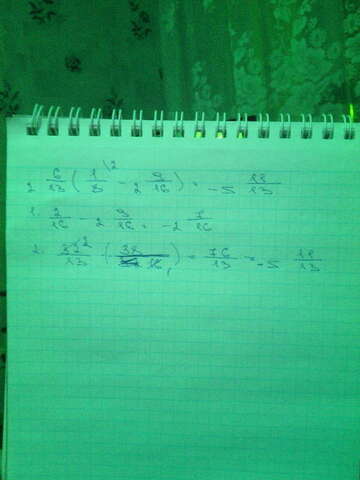 2 6/13 (1/8 \2 - 2 9/16) = -5 11/13
1. 2/16 - 2 9/16 = -2 7/16
2. 32 2/13 · (- 38/16 1) = 76/13 = -5 11/13